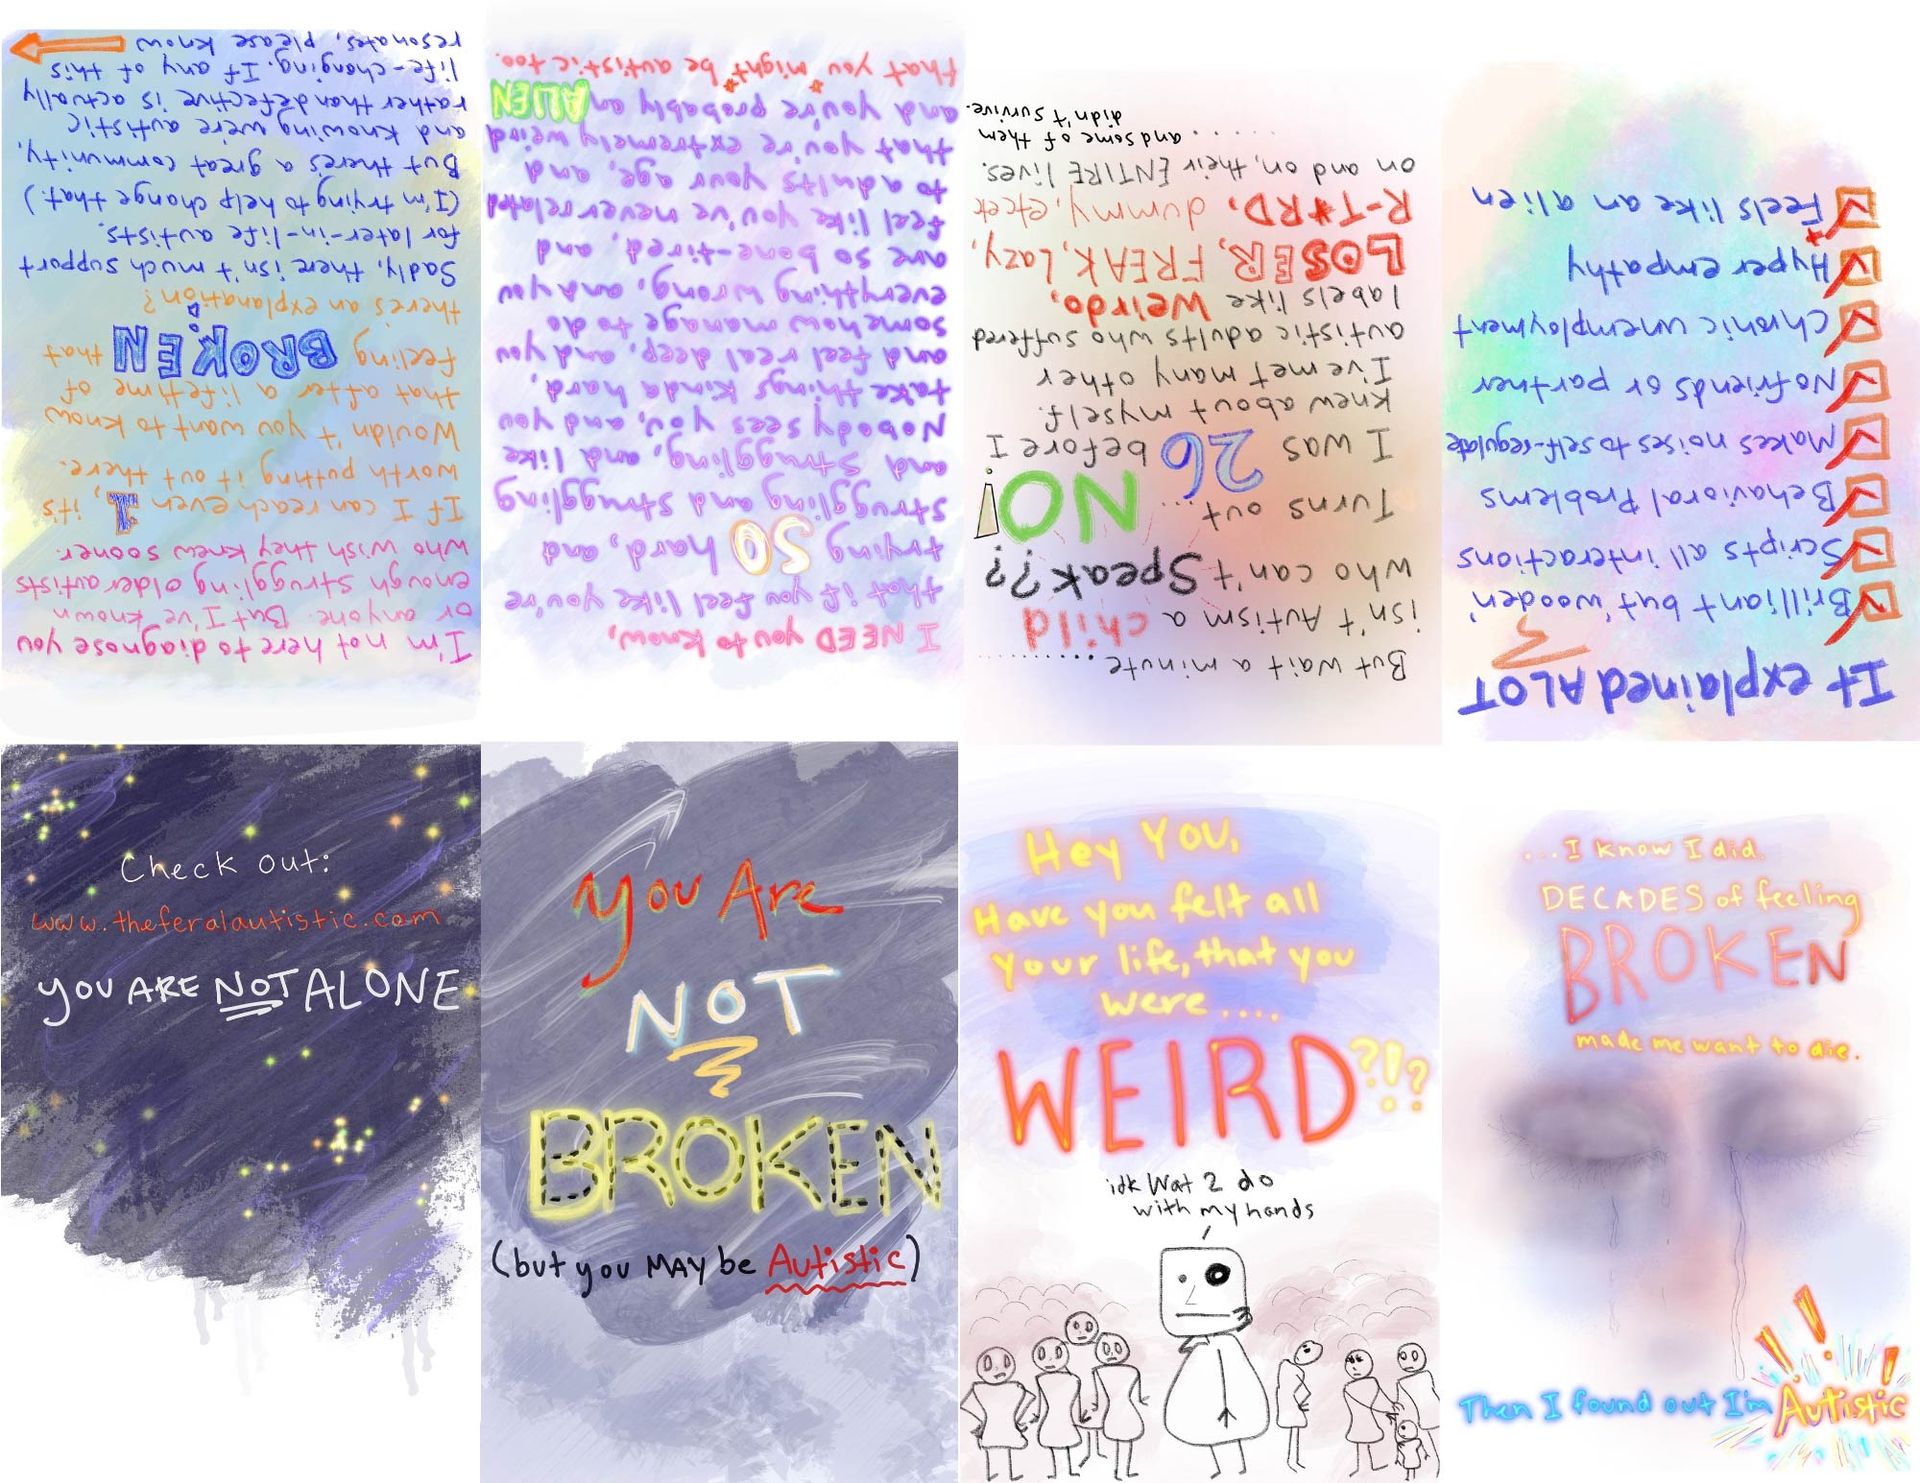 You Are
NOT
BROKEN
(but you MAY be Autistic)
Hey You,
Have you felt all
your life, that you
were....
WEIRD?!?
idk Wat 2 do
with my hands
...I know I did.
DECADES of feeling
BROKEN
made me want to die.
Then I found out I'm Autistic
It explained ALOT
Brilliant but 'wooden'
Scripts all interactions
Behavioral Problems
Makes noises to self-regulate
No friends or partner
Chronic unemployment
Hyper empathy
Feels like an alien
But wait a minute..........
isn't Autism a child
who can't Speak??
NO!
Turns out...
I was 26 before I
knew about myself.
I've met many other
autistic adults who suffered
labels like Weirdo,
LOSER, FREAK, Lazy,
R-T*RD, dummy, etcet
on and on, their ENTIRE lives.
......and some of them
didn't survive.
I NEED you to know,
that if you feel like you're
trying SO hard, and
struggling and struggling
and struggling, and, like
Nobody sees you, and you
take things kinda hard,
and feel real deep, and you
somehow manage to do
everything wrong, and you
are so bone-tired, and
feel like you've never related
to adults your age, and,
that you're extremely weird
and you're probably an ALIEN
that you *might* be autistic too.
I'm not here to diagnose you
or anyone. But I've known
enough struggling older autists
who wish they knew sooner.
If I can reach even 1, it's
worth putting it out there.
Wouldn't you want to know
that after a lifetime of
feeling BROKEN that
there's an explanation?
Sadly, there isn't much support
for later-in-life autists.
(I'm trying to help change that.)
But there's a great community,
and knowing we're autistic
rather than defective is actually
life-changing. If any of this
resonates, please know
Check out:
www.theferalautistic.com
YOU ARE NOT ALONE